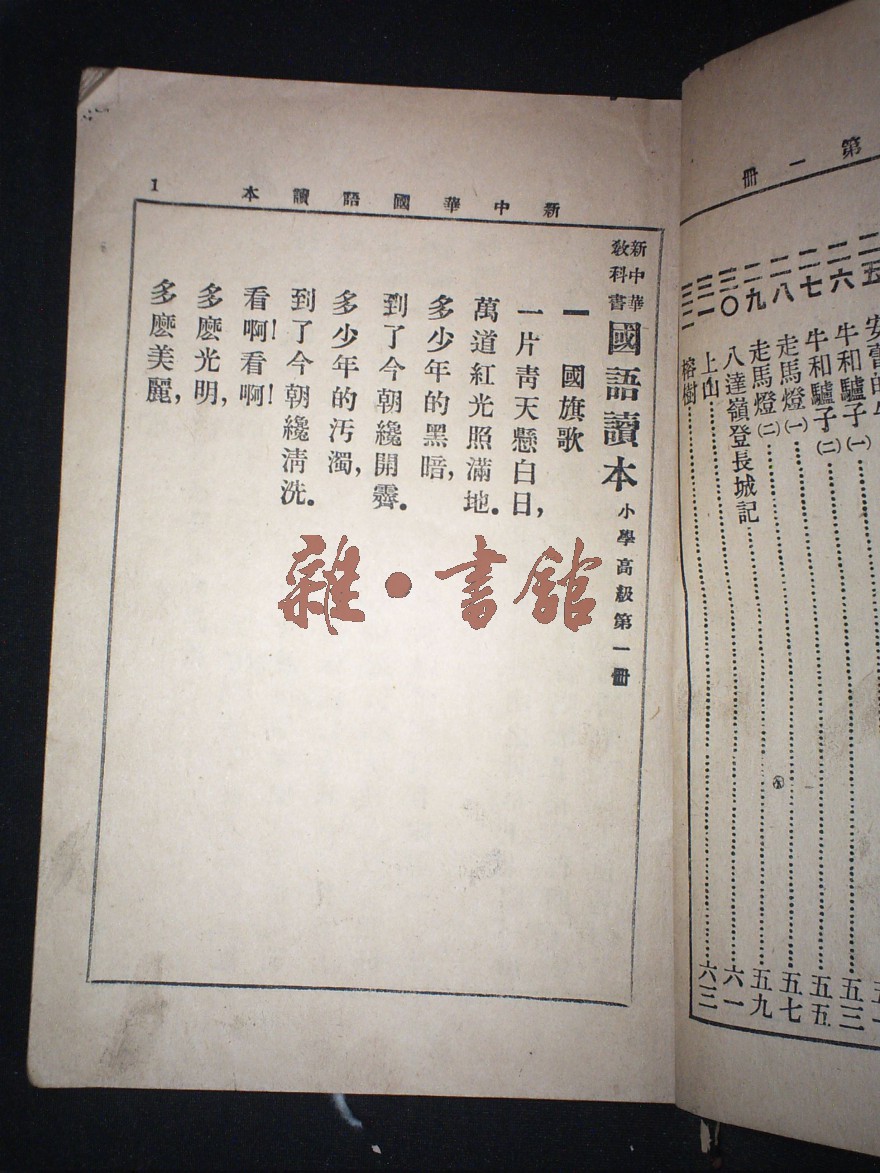 第一冊
二六 牛和驢子(一)……五三
二七 牛和驢子(二)……五五
二八 走馬燈(一)……五七
二九 走馬燈(二)……五九
三〇 八達嶺登長城記……六一
三一 上山……六三
三二 榕樹……
新中華國語讀本 1
新中華教科書 國語讀本 小學高級第一冊
一 國旗歌
一片青天懸白日,
萬道紅光照滿地。
多少年的黑暗,
到了今朝纔開霽。
多少年的污濁,
到了今朝纔淸洗。
看啊!看啊!
多麽光明,
多麽美麗,
雜·書館